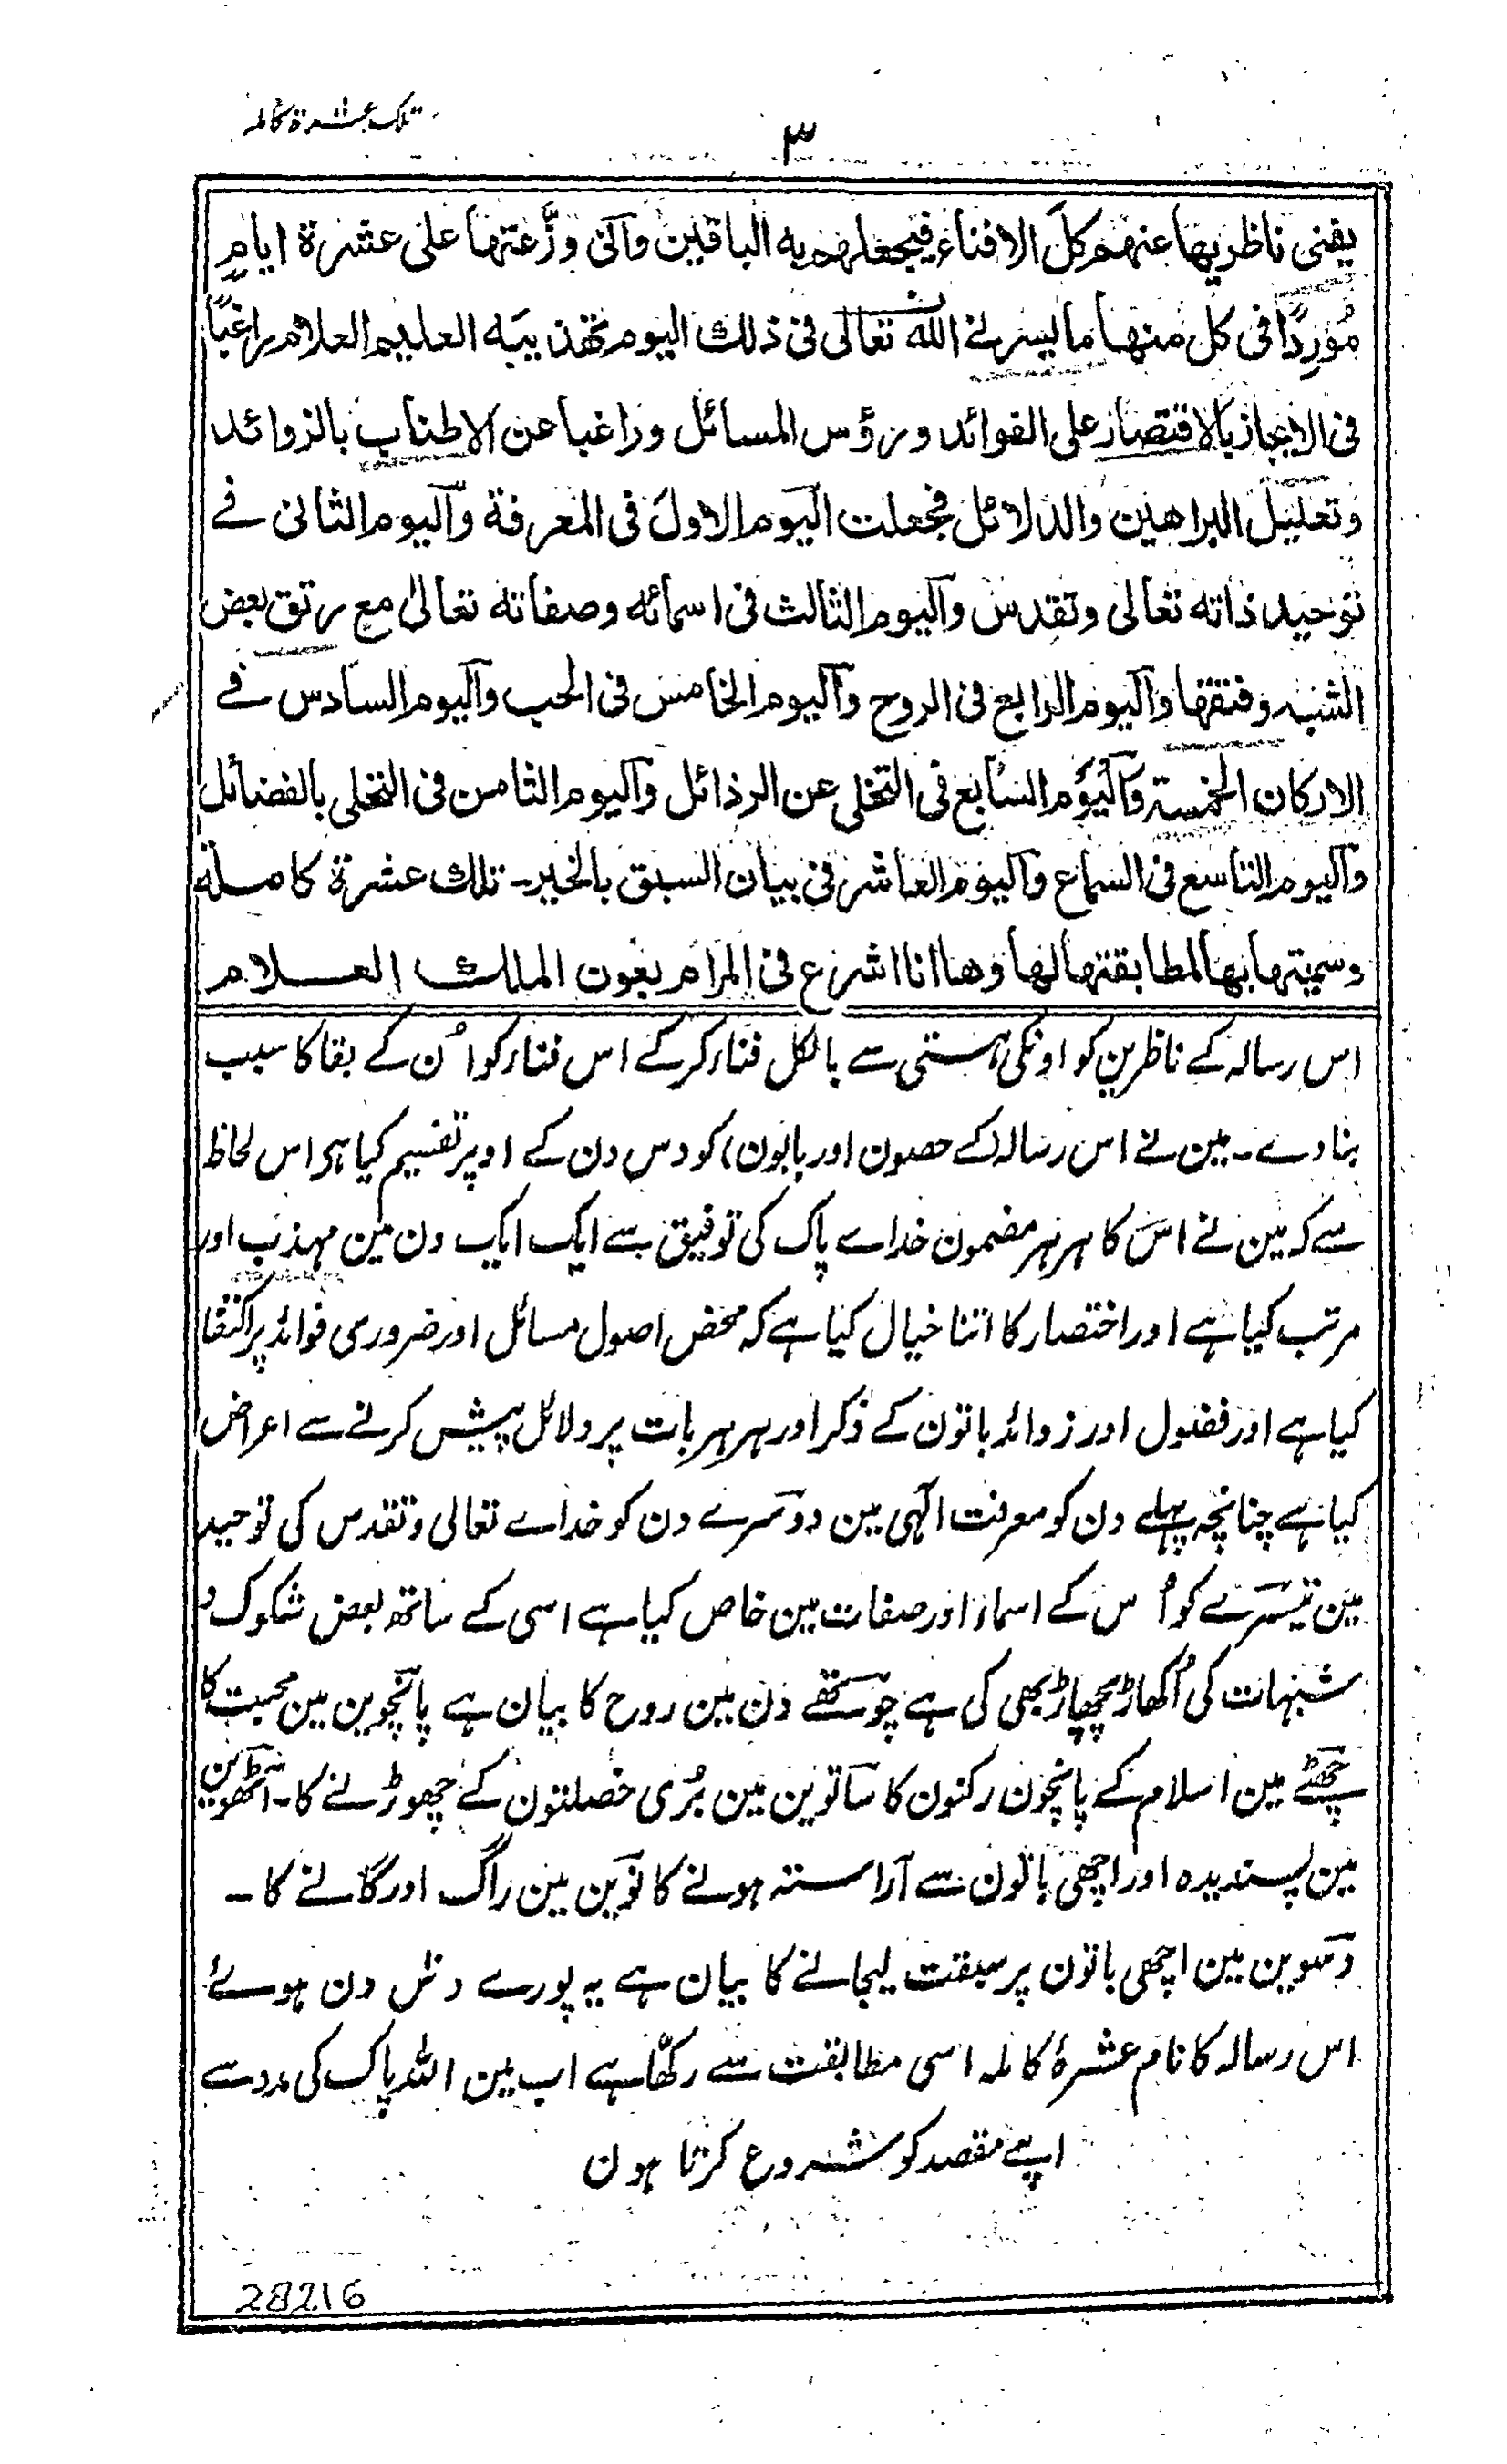 تلک عشرة کاملہ
۳
يفنى ناظريها عنهم كلَّ الافناء فيجعلهم به الباقين وآنى وزَّعتها على عشرة ايامٍ
مُورِدًا فى كل منها ما يسر لى الله تعالى فى ذلك اليوم تهذيبَه العليم العلام راغبًا
فى الايجاز بالاقتصار على الفوائد ورؤس المسائل وراغبا عن الاطناب بالزوائد
وتعليل البراهين والدلائل فجعلت اليوم الاول فى المعرفة وآليوم الثانى فے
توحيد ذاته تعالى وتقدس وآليوم الثالث فى اسمائه وصفاته تعالىٰ مع رتق بعض
الشبه وفتقها وآليوم الرابع فى الروح وآليوم الخامس فى الحب وآليوم السادس فے
الاركان الخمسة وآليوم السابع فى التخلى عن الرذائل وآليوم الثامن فى التحلى بالفضائل
وآليوم التاسع فى السماع وآليوم العاشر فى بيان السبق بالخير۔ تلك عشرة كاملة
وسميتها بها لمطابقتها لها وها انا اشرع فى المرام بعون الملك العلام
اس رسالہ کے ناظرین کو اونکی ہستی سے بالکل فنار کرکے اس فنار کو اُن کے بقا کا سبب
بنادے۔ مین نے اس رسالہ (کے حصون اور بابون) کو دس دن کے اوپر تقسیم کیا ہی اس لحاظ
سے کہ مین نے اس کا ہر ہر مضمون خداے پاک کی توفیق سے ایک ایک دن مین مہذب اور
مرتب کیا ہے اور اختصار کا اتنا خیال کیا ہے کہ محض اصول مسائل اور ضروری فوائد پر اکتفا
کیا ہے اور فضول اور زوائد باتون کے ذکر اور ہر ہر بات پر دلائل پیش کرنے سے اعراض
کیا ہے چنانچہ پہلے دن کو معرفت الٰہی مین دوسرے دن کو خداے تعالی وتقدس کی توحید
مین تیسرے کو اُس کے اسمار اور صفات مین خاص کیا ہے اسی کے ساتھ بعض شکوک و
شبہات کی اُکھاڑ پچھاڑ بھی کی ہے چوتھے دن مین روح کا بیان ہے پانچوین مین محبت کا
چھٹے مین اسلام کے پانچون رکنون کا ساتوین مین بُری خصلتون کے چھوڑنے کا۔ آٹھوین
مین پسندیدہ اور اچھی باتون سے آراستہ ہونے کا نوین مین راگ اور گانے کا ۔
دسوین مین اچھی باتون پر سبقت لیجانے کا بیان ہے یہ پورے دس دن ہوے
اس رسالہ کا نام عشرۂ کاملہ اسی مطابقت سے رکھّا ہے اب مین اللہ پاک کی مدد سے
اپنے مقصد کو شروع کرتا ہون
28216